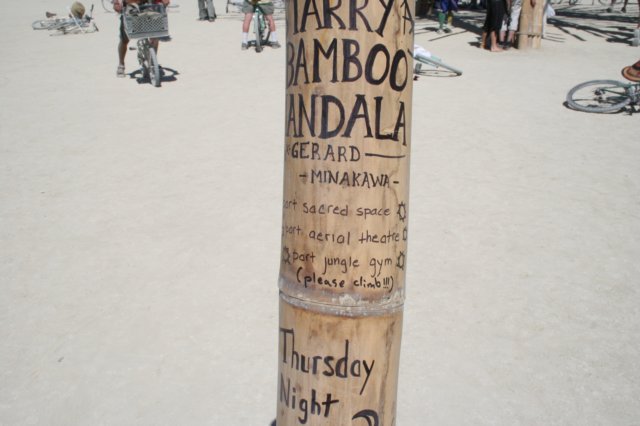 BAMBOO
GERARD
-MINAKAWA-
sacred space
part aerial theatre
part jungle gym
(please climb!!!)
Thursday
Night